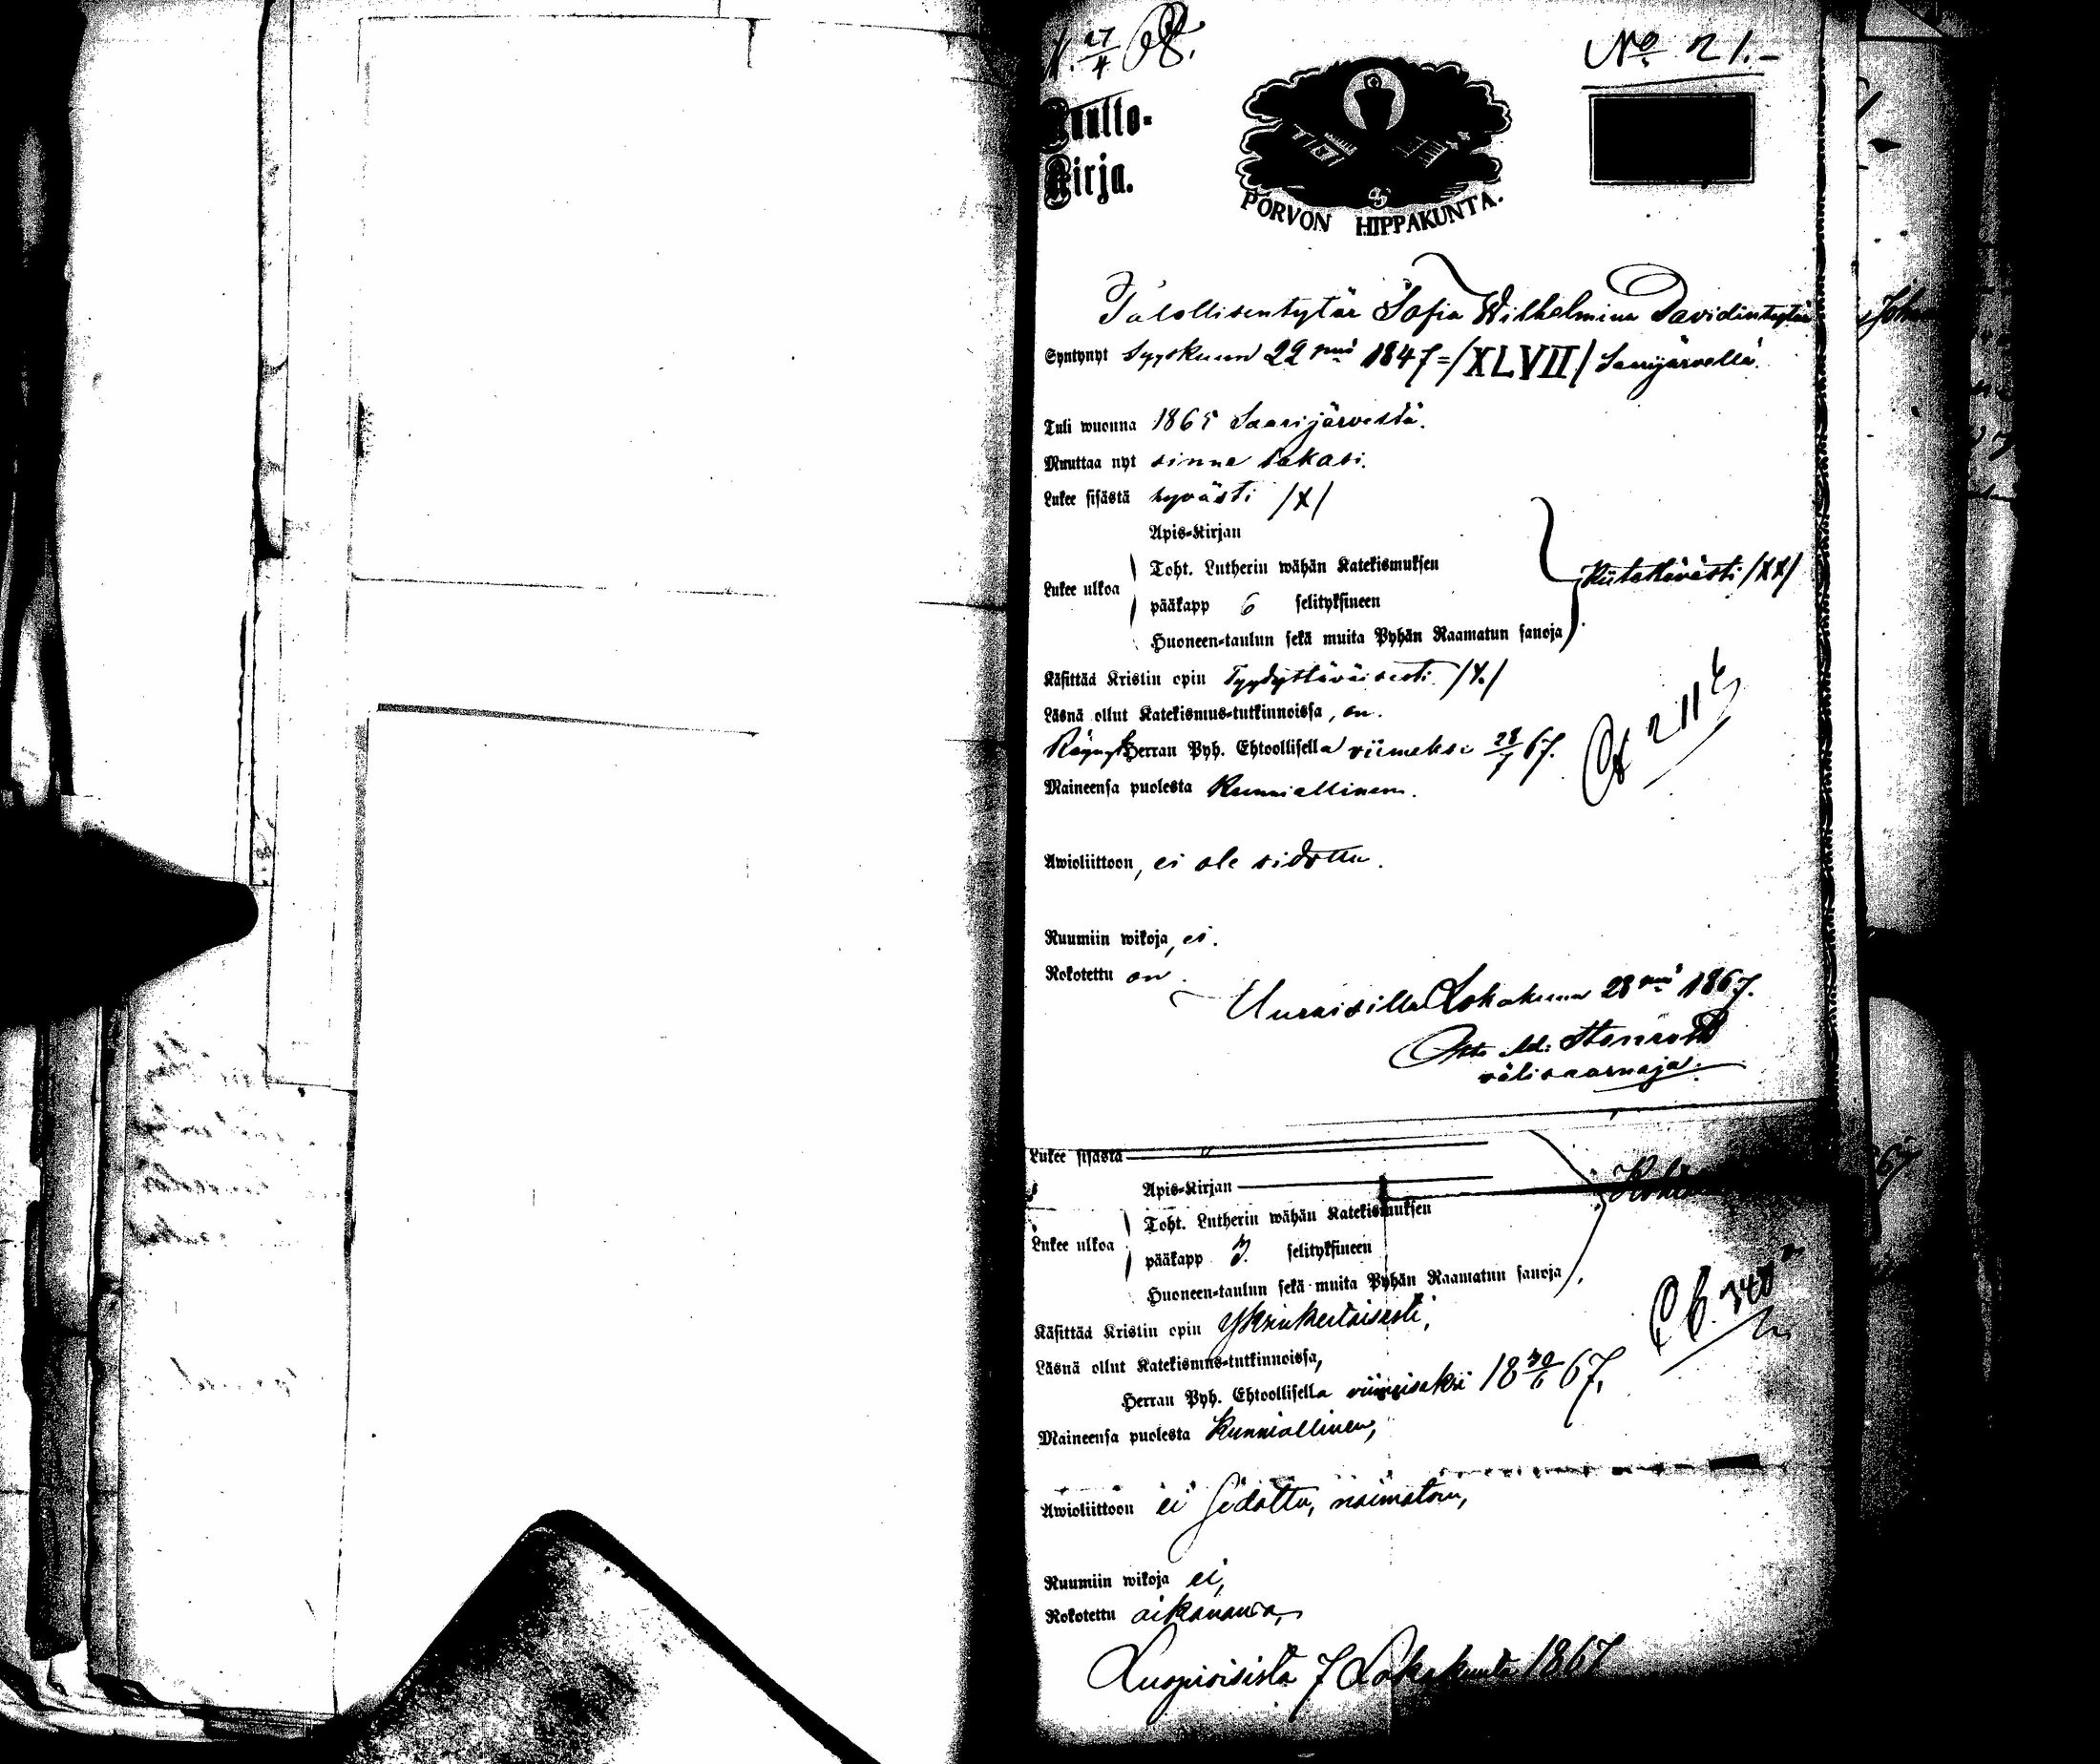 27/4 68.
No 21.-
Muutto-
Kirja.
PORVON HIPPAKUNTA.
Talollisentytär Sofia Wilhelmina Davidintytär
Syntynyt Syyskuun 22 1847=/XLVII/ Saarijärvellä.
Tuli wuonna 1865 Saarijärvestä.
Muuttaa nyt sinne takasi.
Lukee sisästä hyvästi /X/
Apis-Kirjan
Toht. Lutherin wähän Katekismuksen
Lukee ulkoa
pääkapp 6 selityksineen
Huoneen-taulun sekä muita Pyhän Raamatun sanoja
Kiitettävästi /XX/
Käsittää Kristin opin Tyydyttäväisesti /X./
Läsnä ollut Katekismus-tutkinnoissa, on.
Käynyt Herran Pyh. Ehtoollisella viimeksi 28/7 67.
Maineensa puolesta Kunniallinen.
211
Awioliittoon, ei ole sidottu.
Ruumiin wikoja, ei.
Rokotettu on.
Uuraisilla Lokakuun 28 1867.
välisaarnaja.
Lukee sisästä
Apis-Kirjan
Toht. Lutherin wähän Katekismuksen
Lukee ulkoa
pääkapp 3. selityksineen
Huoneen-taulun sekä muita Pyhän Raamatun sanoja
Käsittää Kristin opin Yksinkertaisesti,
Läsnä ollut Katekismus-tutkinnoissa,
Herran Pyh. Ehtoollisella viimeiseksi 18 30/6 67.
Maineensa puolesta Kunniallinen,
Awioliittoon ei Sidottu, naimatoin,
Ruumiin wikoja ei,
Rokotettu aikananсa,
7 Lokakuuta 1867